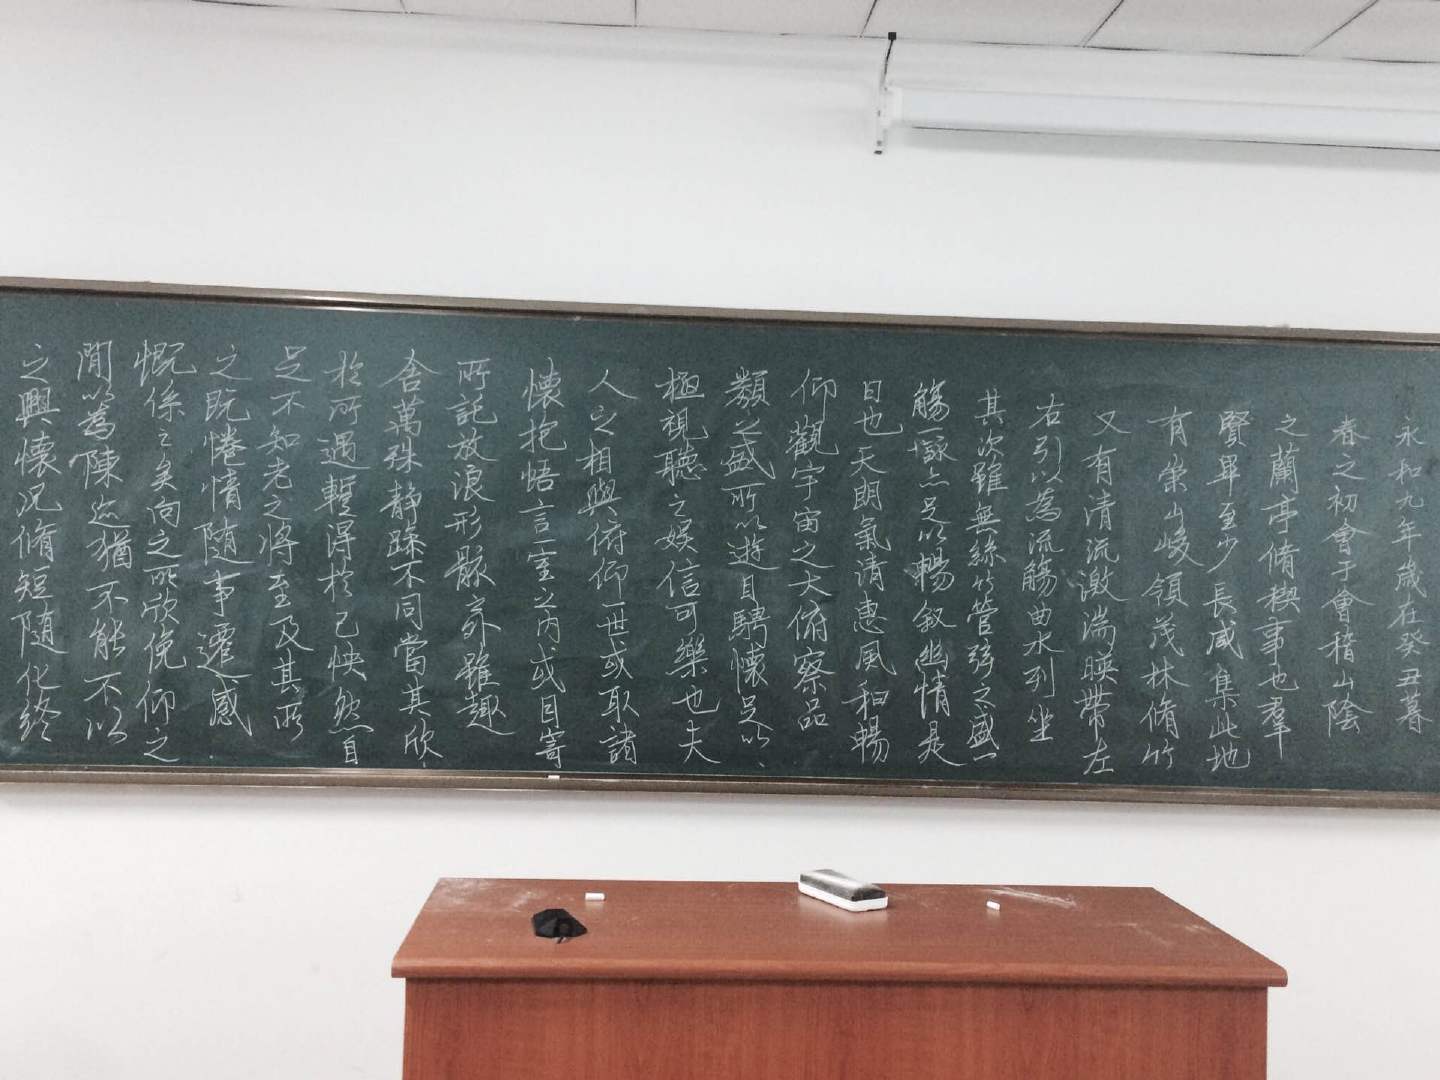 永和九年歲在癸丑暮
春之初會于會稽山陰
之蘭亭脩稧事也羣
賢畢至少長咸集此地
有崇山峻領茂林脩竹
又有清流激湍暎帶左
右引以為流觴曲水列坐
其次雖無絲竹管弦之盛一
觴一詠亦足以暢叙幽情是
日也天朗氣清惠風和暢
仰觀宇宙之大俯察品
類之盛所以遊目騁懷足以
極視聽之娛信可樂也夫
人之相與俯仰一世或取諸
懷抱悟言一室之內或因寄
所託放浪形骸之外雖趣
舍萬殊静躁不同當其欣
於所遇蹔得於己怏然自
足不知老之將至及其所
之既惓情隨事遷感
慨係之矣向之所欣俛仰之
閒以為陳迹猶不能不以
之興懷況脩短隨化終